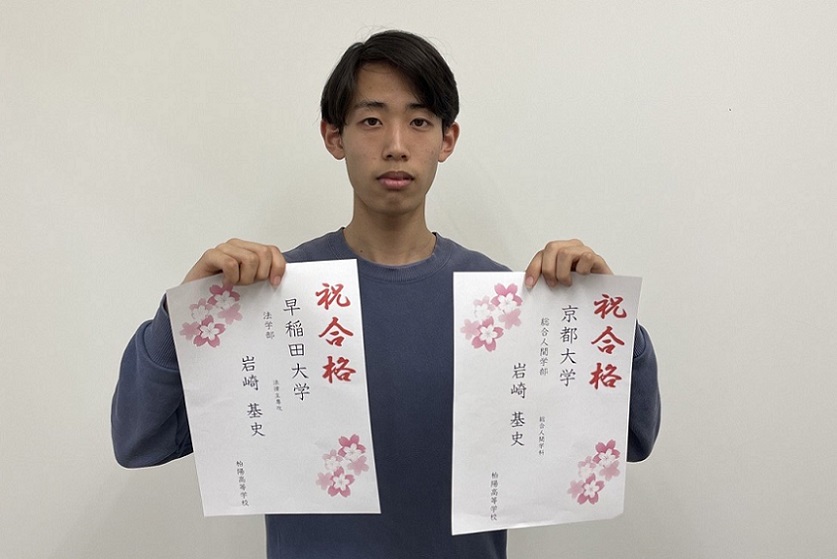 祝合格
早稲田大学
法学部
法律主専攻
岩崎 基史
柏陽高等学校
祝合格
京都大学
総合人間学部
総合人間学科
岩崎 基史
柏陽高等学校